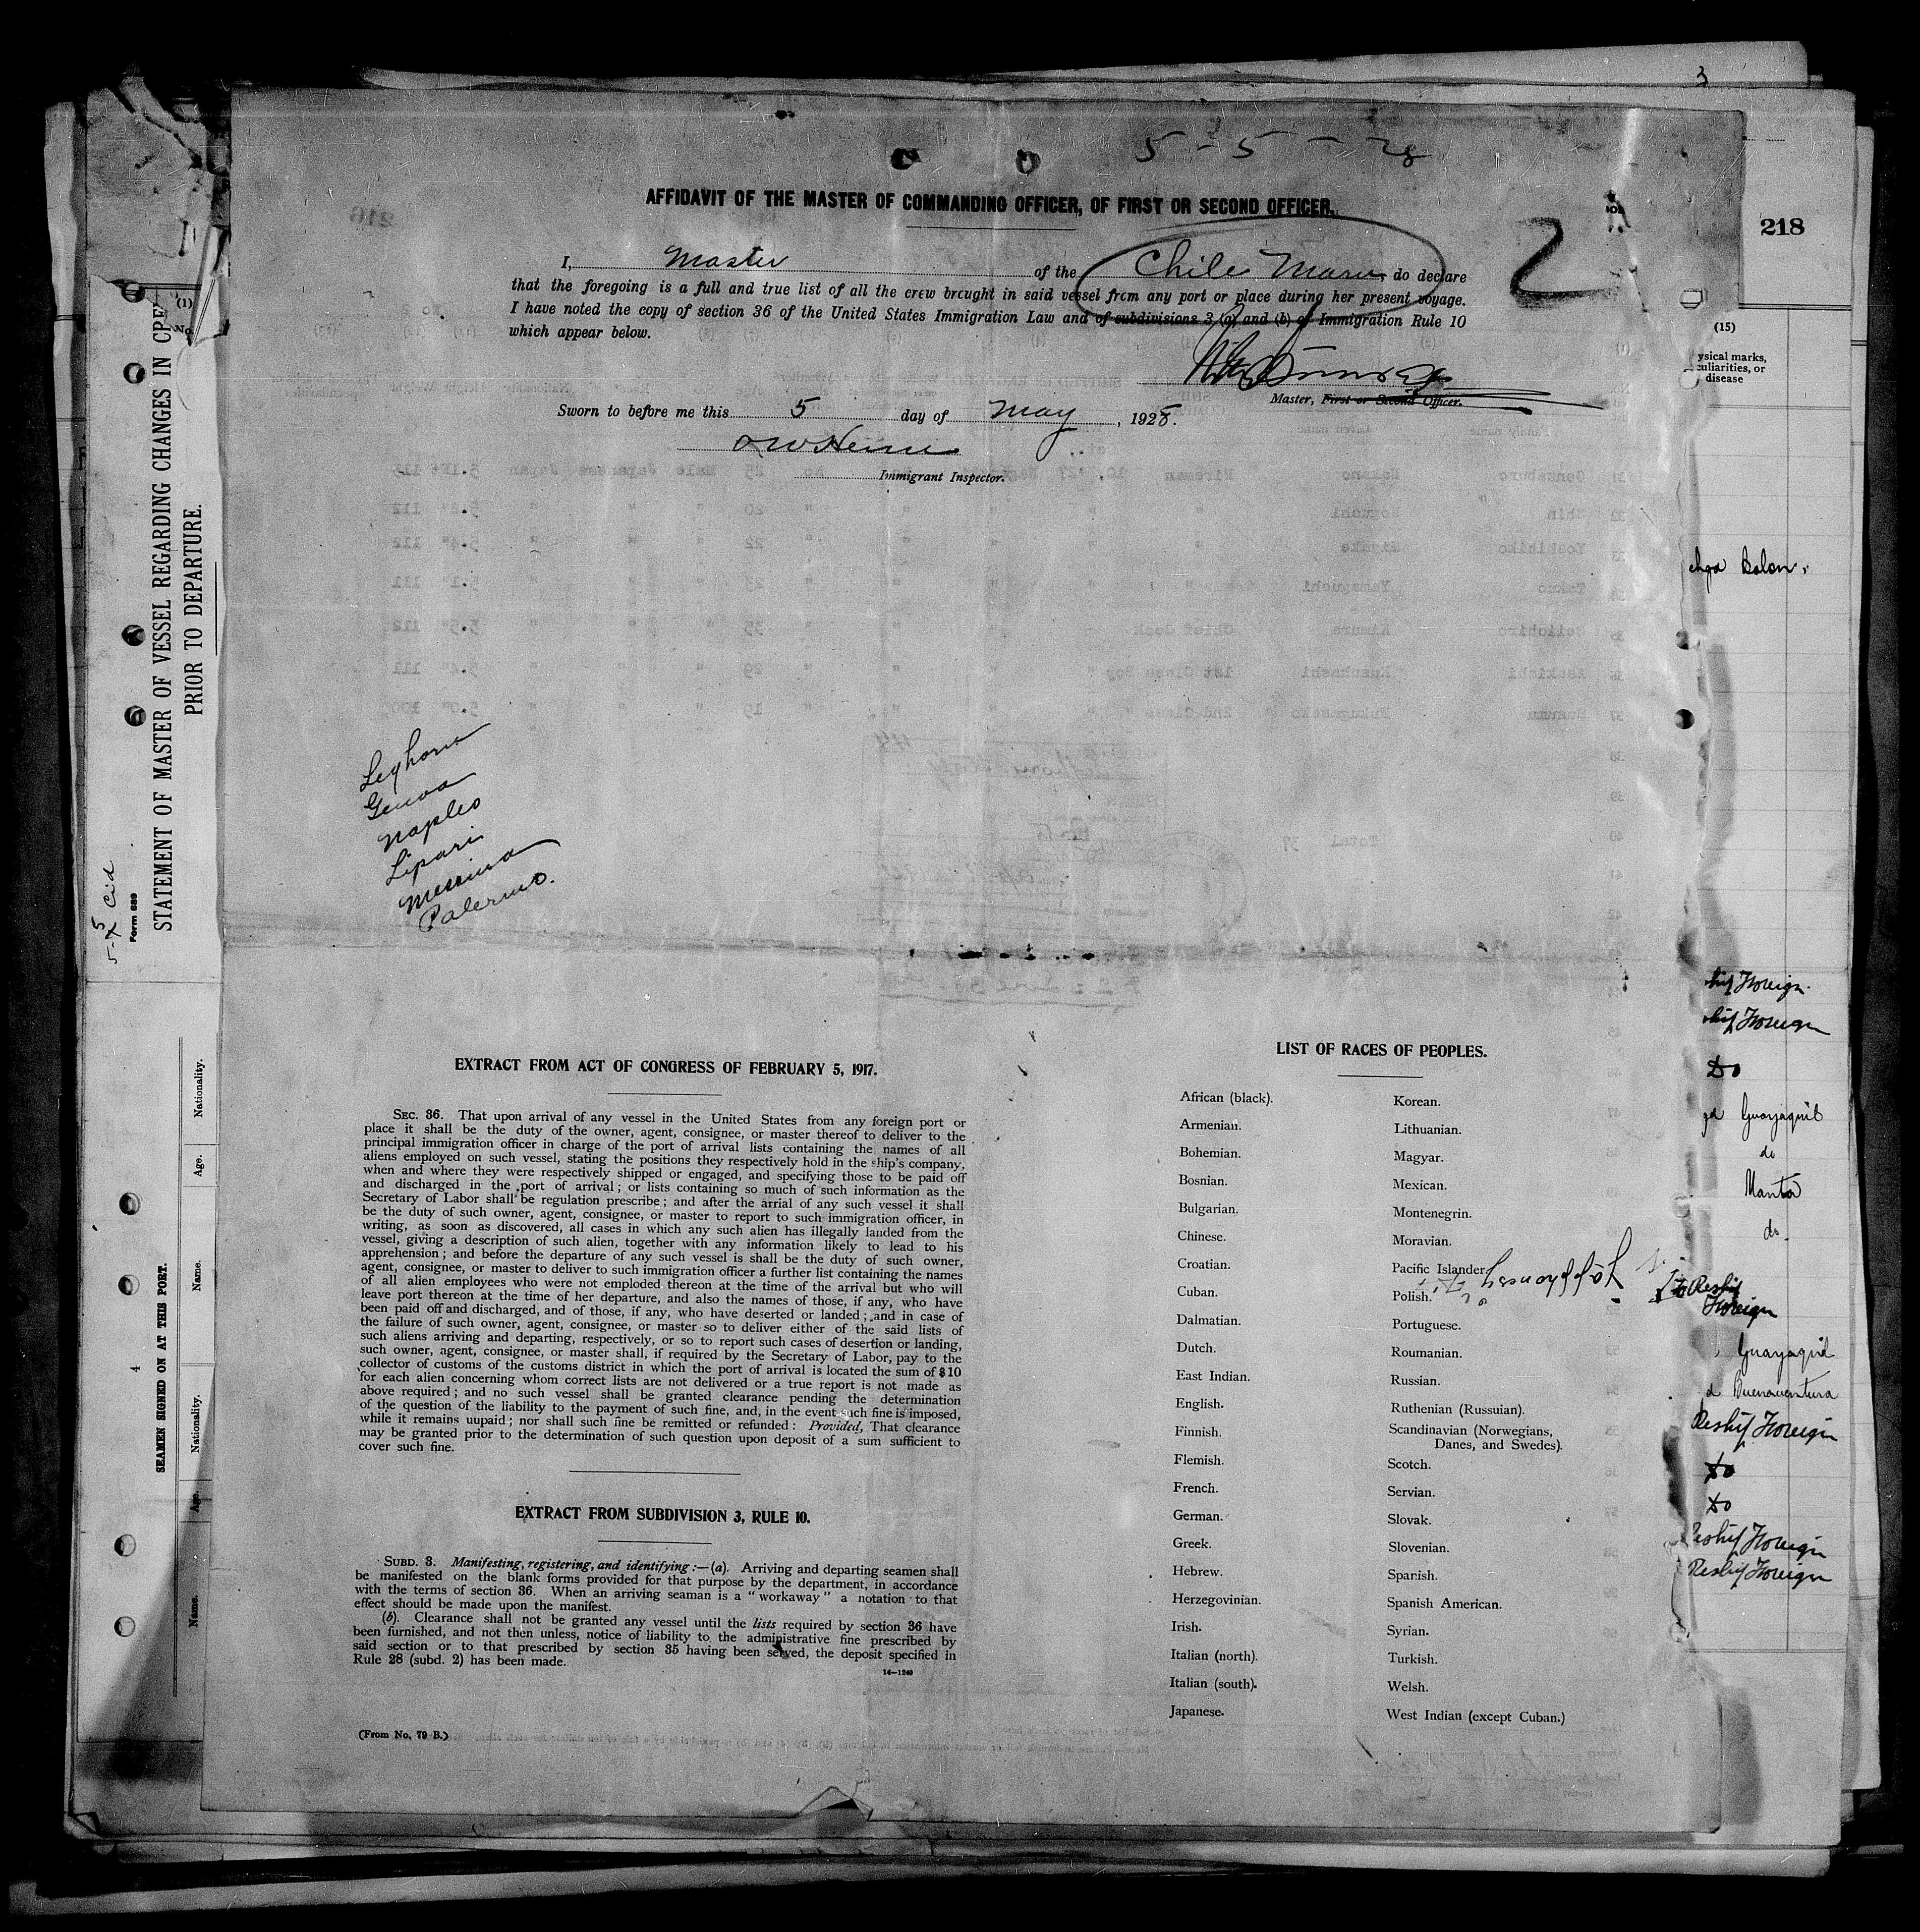 3
5-5-28
AFFIDAVIT OF THE MASTER OF COMMANDING OFFICER, OF FIRST OR SECOND OFFICER.
2
218
I, Master of the Chile Maru, do declare
that the foregoing is a full and true list of all the crew brought in said vessel from any port or place during her present voyage.
I have noted the copy of section 36 of the United States Immigration Law and of subdivisions 3 (a) and (b) of Immigration Rule 10
which appear below.
Master, First or Second Officer.
Sworn to before me this 5 day of May, 1928.
Immigrant Inspector.
(15)
ysical marks,
culiarities, or
disease
(1)
STATEMENT OF MASTER OF VESSEL REGARDING CHANGES IN
PRIOR TO DEPARTURE.
Form 689
Leghorn
Genoa
Naples
Lipari
Messina
Palermo.
EXTRACT FROM ACT OF CONGRESS OF FEBRUARY 5, 1917.
SEC. 36. That upon arrival of any vessel in the United States from any foreign port or
place it shall be the duty of the owner, agent, consignee, or master thereof to deliver to the
principal immigration officer in charge of the port of arrival lists containing the names of all
aliens employed on such vessel, stating the positions they respectively hold in the ship's company,
when and where they were respectively shipped or engaged, and specifying those to be paid off
and discharged in the port of arrival; or lists containing so much of such information as the
Secretary of Labor shall be regulation prescribe; and after the arrial of any such vessel it shall
be the duty of such owner, agent, consignee, or master to report to such immigration officer, in
writing, as soon as discovered, all cases in which any such alien has illegally landed from the
vessel, giving a description of such alien, together with any information likely to lead to his
apprehension; and before the departure of any such vessel is shall be the duty of such owner,
agent, consignee, or master to deliver to such immigration officer a further list containing the names
of all alien employees who were not emploded thereon at the time of the arrival but who will
leave port thereon at the time of her departure, and also the names of those, if any, who have
been paid off and discharged, and of those, if any, who have deserted or landed; and in case of
the failure of such owner, agent, consignee, or master so to deliver either of the said lists of
such aliens arriving and departing, respectively, or so to report such cases of desertion or landing,
such owner, agent, consignee, or master shall, if required by the Secretary of Labor, pay to the
collector of customs of the customs district in which the port of arrival is located the sum of $10
for each alien concerning whom correct lists are not delivered or a true report is not made as
above required; and no such vessel shall be granted clearance pending the determination
of the question of the liability to the payment of such fine, and, in the event such fine is imposed,
while it remains uupaid; nor shall such fine be remitted or refunded: Provided, That clearance
may be granted prior to the determination of such question upon deposit of a sum sufficient to
cover such fine.
EXTRACT FROM SUBDIVISION 3, RULE 10.
SUBD. 3. Manifesting, registering, and identifying:—(a). Arriving and departing seamen shall
be manifested on the blank forms provided for that purpose by the department, in accordance
with the terms of section 36. When an arriving seaman is a "workaway" a notation to that
effect should be made upon the manifest.
(b). Clearance shall not be granted any vessel until the lists required by section 36 have
been furnished, and not then unless, notice of liability to the administrative fine prescribed by
said section or to that prescribed by section 35 having been served, the deposit specified in
Rule 28 (subd. 2) has been made.
14-1240
(From No. 79 B.)
LIST OF RACES OF PEOPLES.
African (black).
Armenian.
Bohemian.
Bosnian.
Bulgarian.
Chinese.
Croatian.
Cuban.
Dalmatian.
Dutch.
East Indian.
English.
Finnish.
Flemish.
French.
German.
Greek.
Hebrew.
Herzegovinian.
Irish.
Italian (north).
Italian (south).
Japanese.
Korean.
Lithuanian.
Magyar.
Mexican.
Montenegrin.
Moravian.
Pacific Islander
Polish.
Portuguese.
Roumanian.
Russian.
Ruthenian (Russuian).
Scandinavian (Norwegians,
Danes, and Swedes).
Scotch.
Servian.
Slovak.
Slovenian.
Spanish.
Spanish American.
Syrian.
Turkish.
Welsh.
West Indian (except Cuban.)
SEAMEN SIGNED ON AT THIS PORT.
4
Name.
Age.
Nationality.
Name.
Age.
Nationality.
Foreign
Foreign
Do
Guayaquil
do
Manta
do.
Reship
Foreign
Guayaquil
Buenaventura
Reship Foreign
Do
Do
Reship Foreign
Reship Foreign